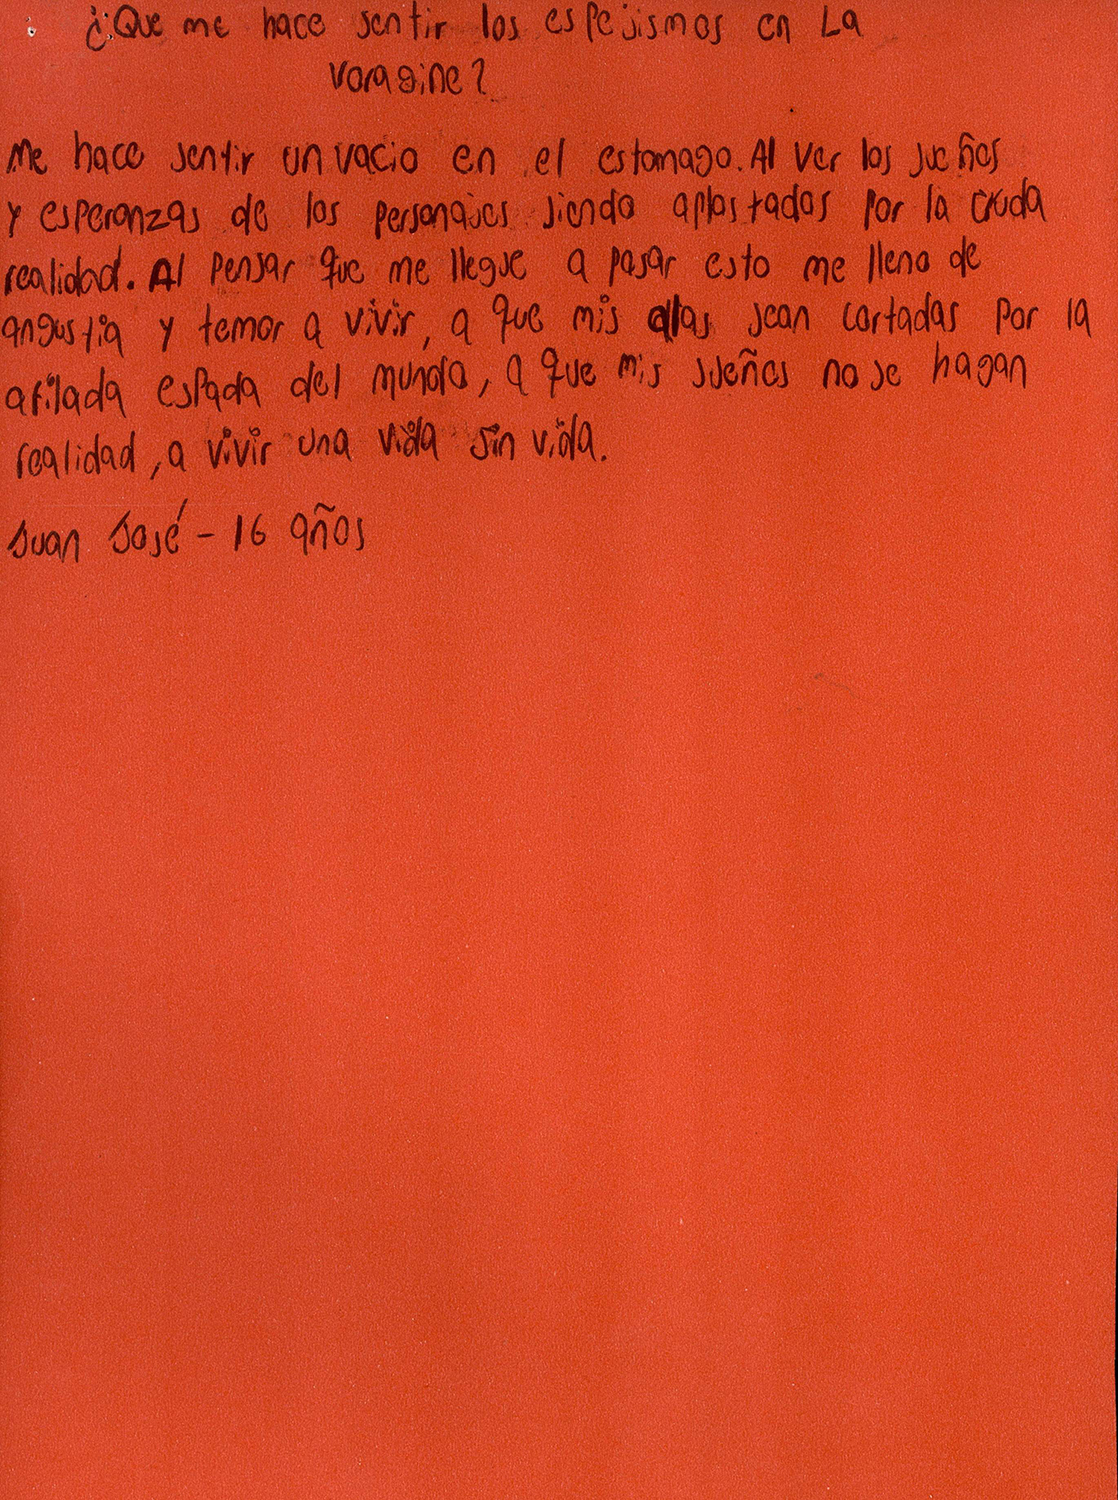 ¿Que me hace sentir los espejismos en La
Voragine?
Me hace sentir un vacio en el estomago. Al ver los sueños
y esperanzas de los personajes siendo aplastadas por la cruda
realidad. Al pensar que me llegue a pasar esto me lleno de
angustia y temor a vivir, a que mis alas sean cortadas por la
afilada espada del mundo, a que mis sueños no se hagan
realidad, a vivir una vida sin vida.
Juan José - 16 años